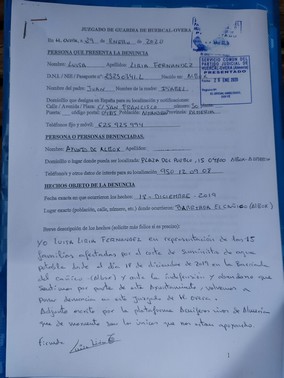 JUZGADO DE GUARDIA DE HUERCAL-OVERA
En H. Overa, a 29 de ENERO de 2020
PERSONA QUE PRESENTA LA DENUNCIA
Nombre: LUISA Apellidos: LIRIA FERNANDEZ
D.N.I. / NIE / Pasaporte nº: Nacido en: ALBOX
Nombre del padre: JUAN Nombre de la madre: ISABEL
Domicilio que designa en España para su localización y notificaciones:
Calle / Avenida / Plaza: C/ SAN FRANCISCO
Puerta: código postal: Provincia: ALMERIA
Teléfonos fijo y móvil:
PERSONA O PERSONAS DENUNCIADAS:
Nombre: AYUNTO DE ALBOX Apellidos:
Domicilio o lugar donde pueda ser localizada: PLAZA DEL PUEBLO, 15 04800 ALBOX
Teléfonos y otros datos de interés para su localización: 950 12 09 08
HECHOS OBJETO DE LA DENUNCIA
Fecha exacta en que ocurrieron los hechos: 15 - DICIEMBRE - 2019
Lugar exacto (población, calle, número, etc.) donde ocurrieron: BARRIADA (ALBOX)
Breve descripción de los hechos (solicite más folios si es preciso):
YO LUISA LIRIA FERNANDEZ en representación de las 15
familias afectadas por el corte de suministro de agua
potable desde el día 15 de diciembre de 2019 en la Barriada
del (Albox) y ante la indefensión y abandono que
sentimos por parte de este Ayuntamiento, volvemos a
poner denuncia en este Juzgado de H. Overa.
Adjunto escrito por la plataforma de Almería
que de momento son los únicos que nos están apoyando.
Firmado
1
SERVICIO COMÚN DEL
PARTIDO JUDICIAL DE
PRESENTADO
ENE 2020